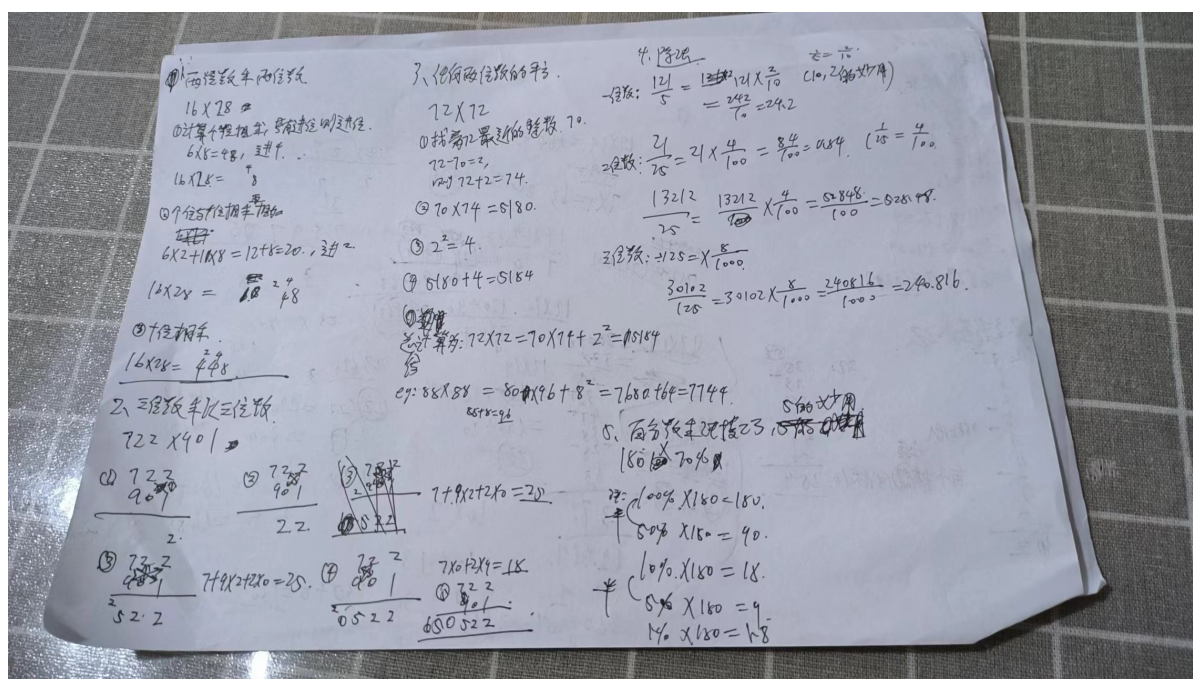 两位数乘两位数
16×28
①计算个位相乘，有进位则进位.
6×8=48, 进4.
16×28= ⁴8
②个位与十位相乘相加
6×2+1×8=12+8=20., 进2
16×28 = ² ⁴ 48
③十位相乘.
16×28= 4²4⁴8
2、三位数乘以三位数.
722×901
① 722
901
2.
② 722
901
22
7+9×2+2×0=25
③ 722
901
²522
7+9×2+2×0=25.
④ 722
901
²0522
7×0+2×9=18
⑤ 722
901
650522
3、任何两位数的平方.
72×72
①找离72最近的整数. 70.
72-70=2,
72+2=74.
②70×74=5180.
③2²=4.
④5180+4=5184
总计算为: 72×72=70×74+2²=5184
eg: 88×88 = 80×96+8²=7680+64=7744.
88+8=96
4. 除法
一位数: 121/5 = 121×2/10 (10, 2的妙用)
= 242/10 = 24.2
2位数: 21/25 = 21×4/100 = 84/100 = 0.84. (1/25 = 4/100
13212/25 = 13212×4/100 = 52848/100 = 528.48.
三位数: ÷125=×8/1000.
30102/125 = 30102×8/1000 = 240816/1000 = 240.816.
5的妙用
5、百分数乘
180×70%
100%×180=180.
半
50%×180=90.
10%×180=18.
半
5%×180=9
1%×180=1.8